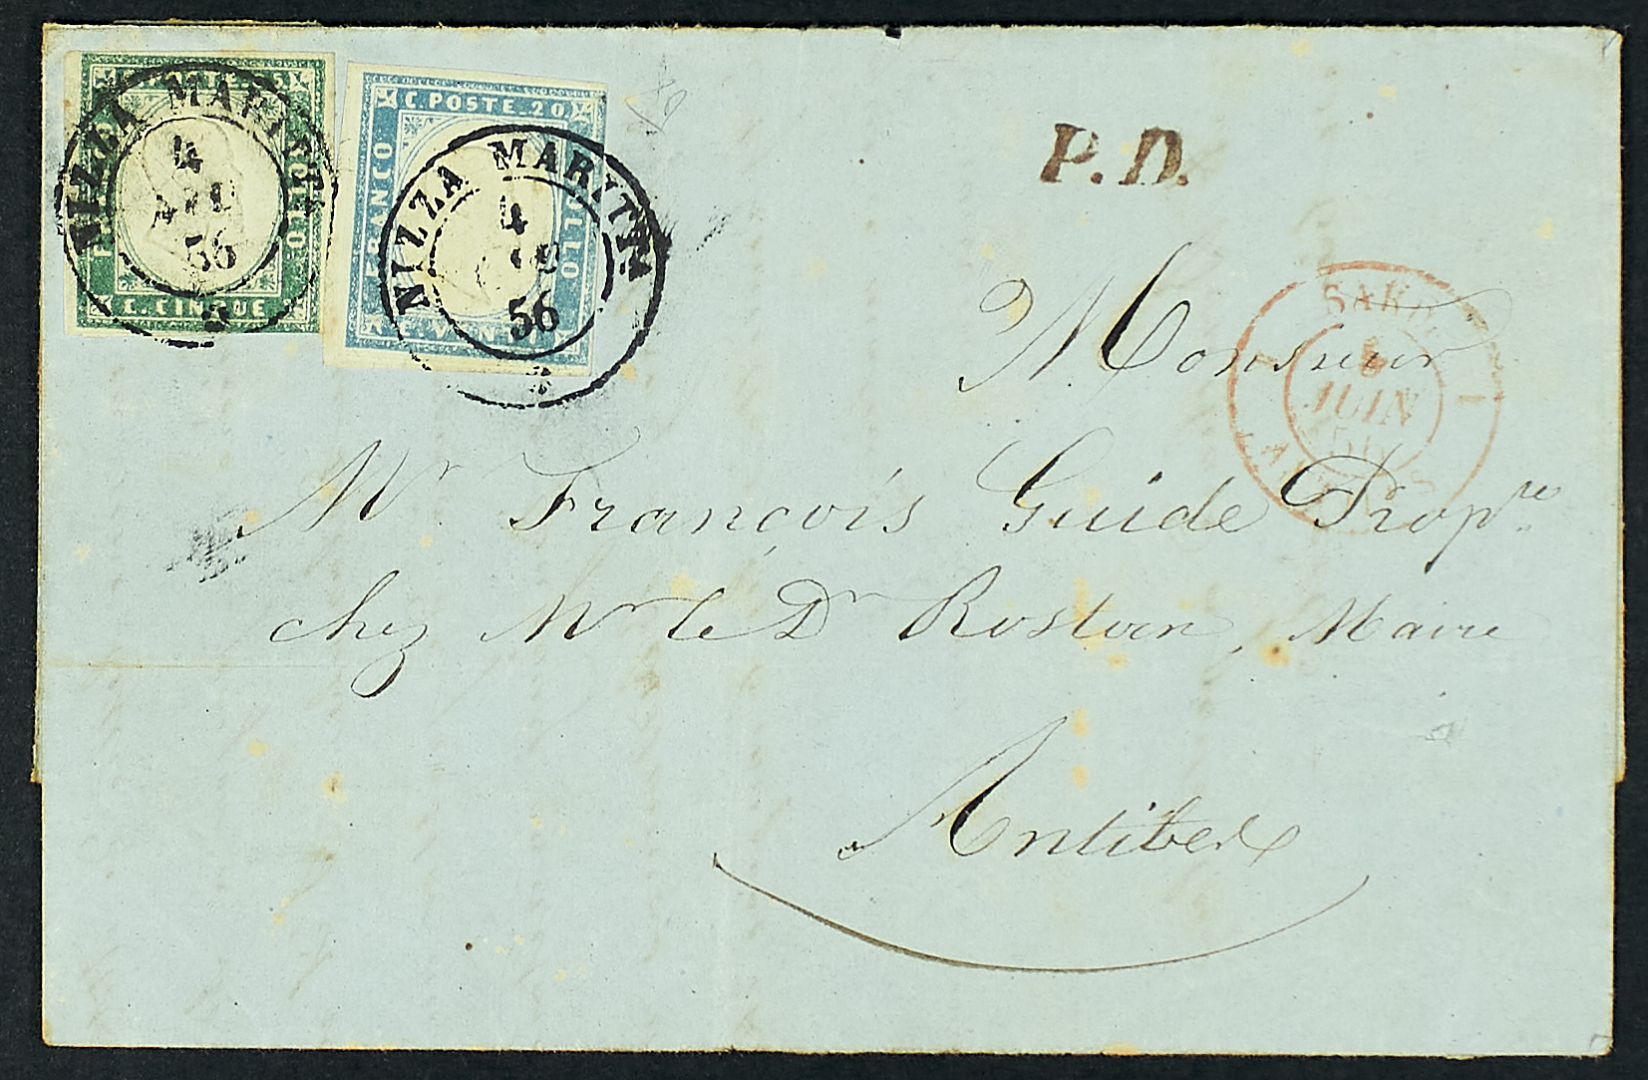 C. POSTE 20
FRANCO
BOLLO
C. CINQUE
FRANCO
BOLLO
NIZZA MARITTA
4
56
NIZZA MARITTA
4
56
P.D.
SARD.
JUIN
Monsieur
Mr François Guide Propre
chez Mr le Dr Rostan, Maire
Antibes